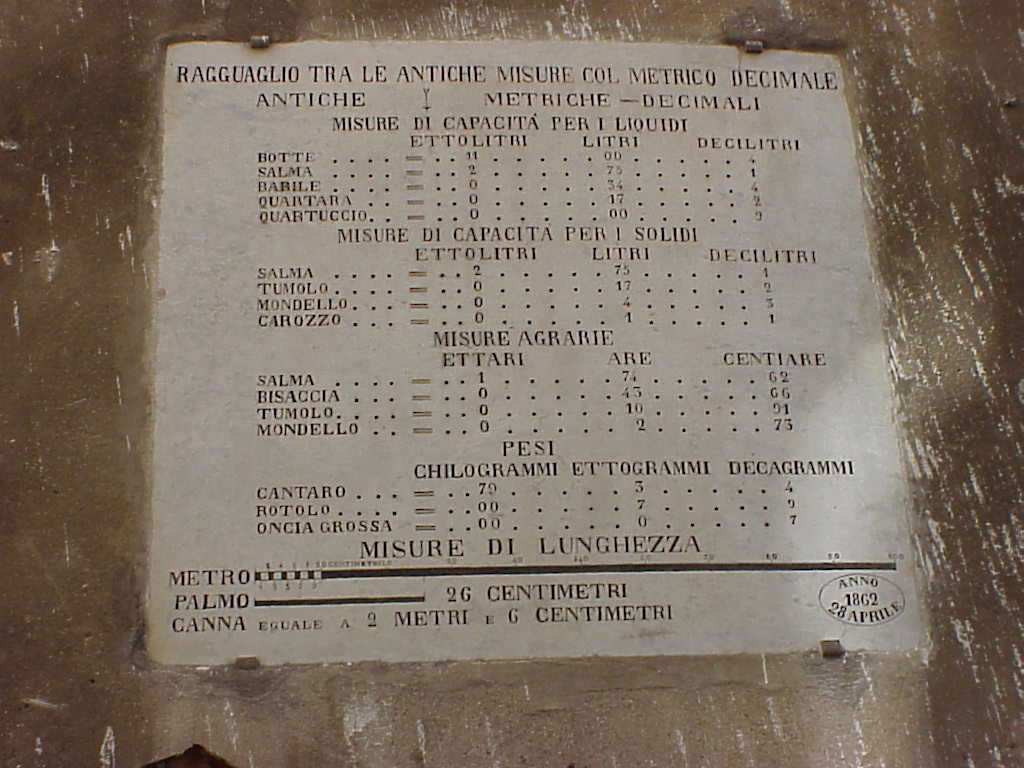 RAGGUAGLIO TRA LE ANTICHE MISURE COL METRICO DECIMALE
ANTICHE METRICHE — DECIMALI
MISURE DI CAPACITÁ PER I LIQUIDI
ETTOLITRI LITRI DECILITRI
BOTTE . . . . = . . 11 . . . . . 00 . . . . . 4
SALMA . . . . = . . 2 . . . . . 75 . . . . . 1
BARILE . . . . = . . 0 . . . . . 34 . . . . . 4
QUARTARA . . . = . . 0 . . . . . 17 . . . . . 2
QUARTUCCIO. . = . . 0 . . . . . 00 . . . . . 9
MISURE DI CAPACITÁ PER I SOLIDI
ETTOLITRI LITRI DECILITRI
SALMA . . . . = . . 2 . . . . . 75 . . . . . 1
TUMOLO . . . . = . . 0 . . . . . 17 . . . . . 2
MONDELLO . . . = . . 0 . . . . . 4 . . . . . 3
CAROZZO . . . = . . 0 . . . . . 1 . . . . . 1
MISURE AGRARIE
ETTARI ARE CENTIARE
SALMA . . . . = . . 1 . . . . . 74 . . . . . 62
BISACCIA . . . = . . 0 . . . . . 43 . . . . . 66
TUMOLO. . . . = . . 0 . . . . . 10 . . . . . 91
MONDELLO . . = . . 0 . . . . . 2 . . . . . 73
PESI
CHILOGRAMMI ETTOGRAMMI DECAGRAMMI
CANTARO . . . = . . 79 . . . . . 3 . . . . . 4
ROTOLO . . . . = . . 00 . . . . . 7 . . . . . 9
ONCIA GROSSA = . . 00 . . . . . 0 . . . . . 7
MISURE DI LUNGHEZZA
METRO
PALMO 26 CENTIMETRI
CANNA EGUALE A 2 METRI E 6 CENTIMETRI
ANNO
1862
28 APRILE